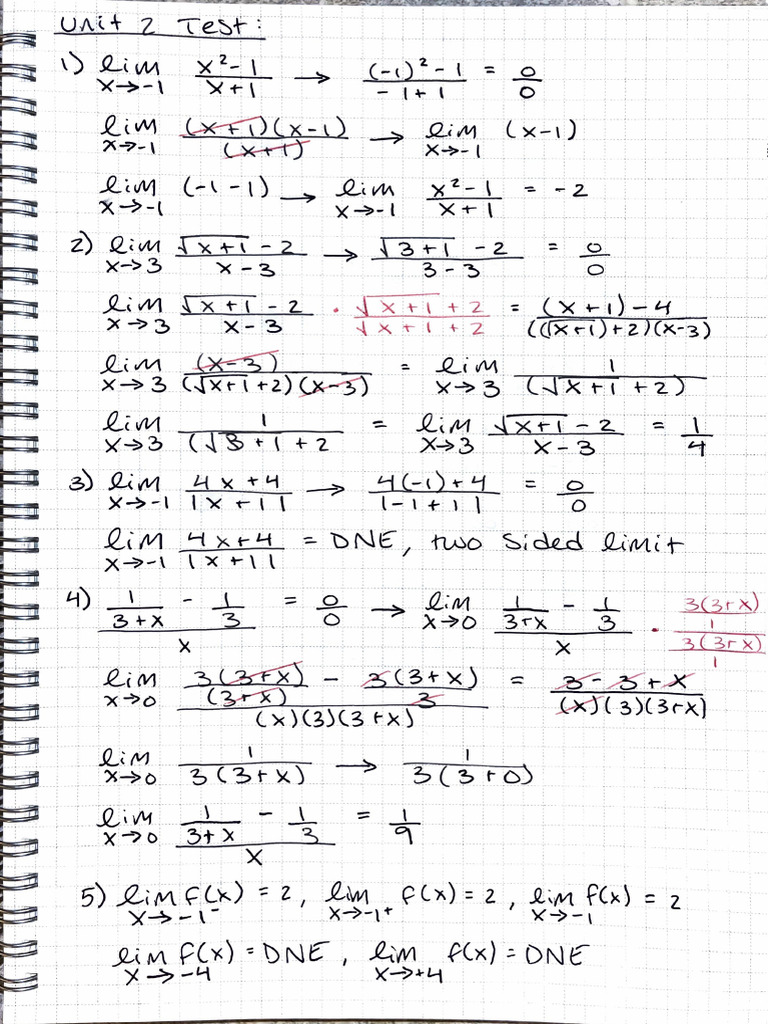 Unit 2 Test:
1) lim x→-1 (x²-1)/(x+1) → ((-1)²-1)/(-1+1) = 0/0
lim x→-1 ((x+1)(x-1))/((x+1)) → lim x→-1 (x-1)
lim x→-1 (-1-1) → lim x→-1 (x²-1)/(x+1) = -2
2) lim x→3 (√(x+1) - 2)/(x-3) → (√(3+1) - 2)/(3-3) = 0/0
lim x→3 (√(x+1) - 2)/(x-3) · (√(x+1) + 2)/(√(x+1) + 2) = ((x+1)-4)/(((√(x+1)+2)(x-3))
lim x→3 (x-3)/((√(x+1)+2)(x-3)) = lim x→3 1/(√(x+1)+2)
lim x→3 1/((√3+1+2) = lim x→3 (√(x+1) - 2)/(x-3) = 1/4
3) lim x→-1 (4x+4)/|x+1| → (4(-1)+4)/|-1+1| = 0/0
lim x→-1 (4x+4)/|x+1| = DNE, two sided limit
4) (1/(3+x) - 1/3)/x = 0/0 → lim x→0 (1/(3+x) - 1/3)/x · (3(3+x)/1)/(3(3+x)/1)
lim x→0 (3(3+x)/(3+x) - 3(3+x)/3)/((x)(3)(3+x)) = (3-3+x)/((x)(3)(3+x))
lim x→0 1/(3(3+x)) → 1/(3(3+0))
lim x→0 (1/(3+x) - 1/3)/x = 1/9
5) lim x→-1⁻ f(x) = 2, lim x→-1⁺ f(x) = 2, lim x→-1 f(x) = 2
lim x→-4 f(x) = DNE, lim x→+4 f(x) = DNE